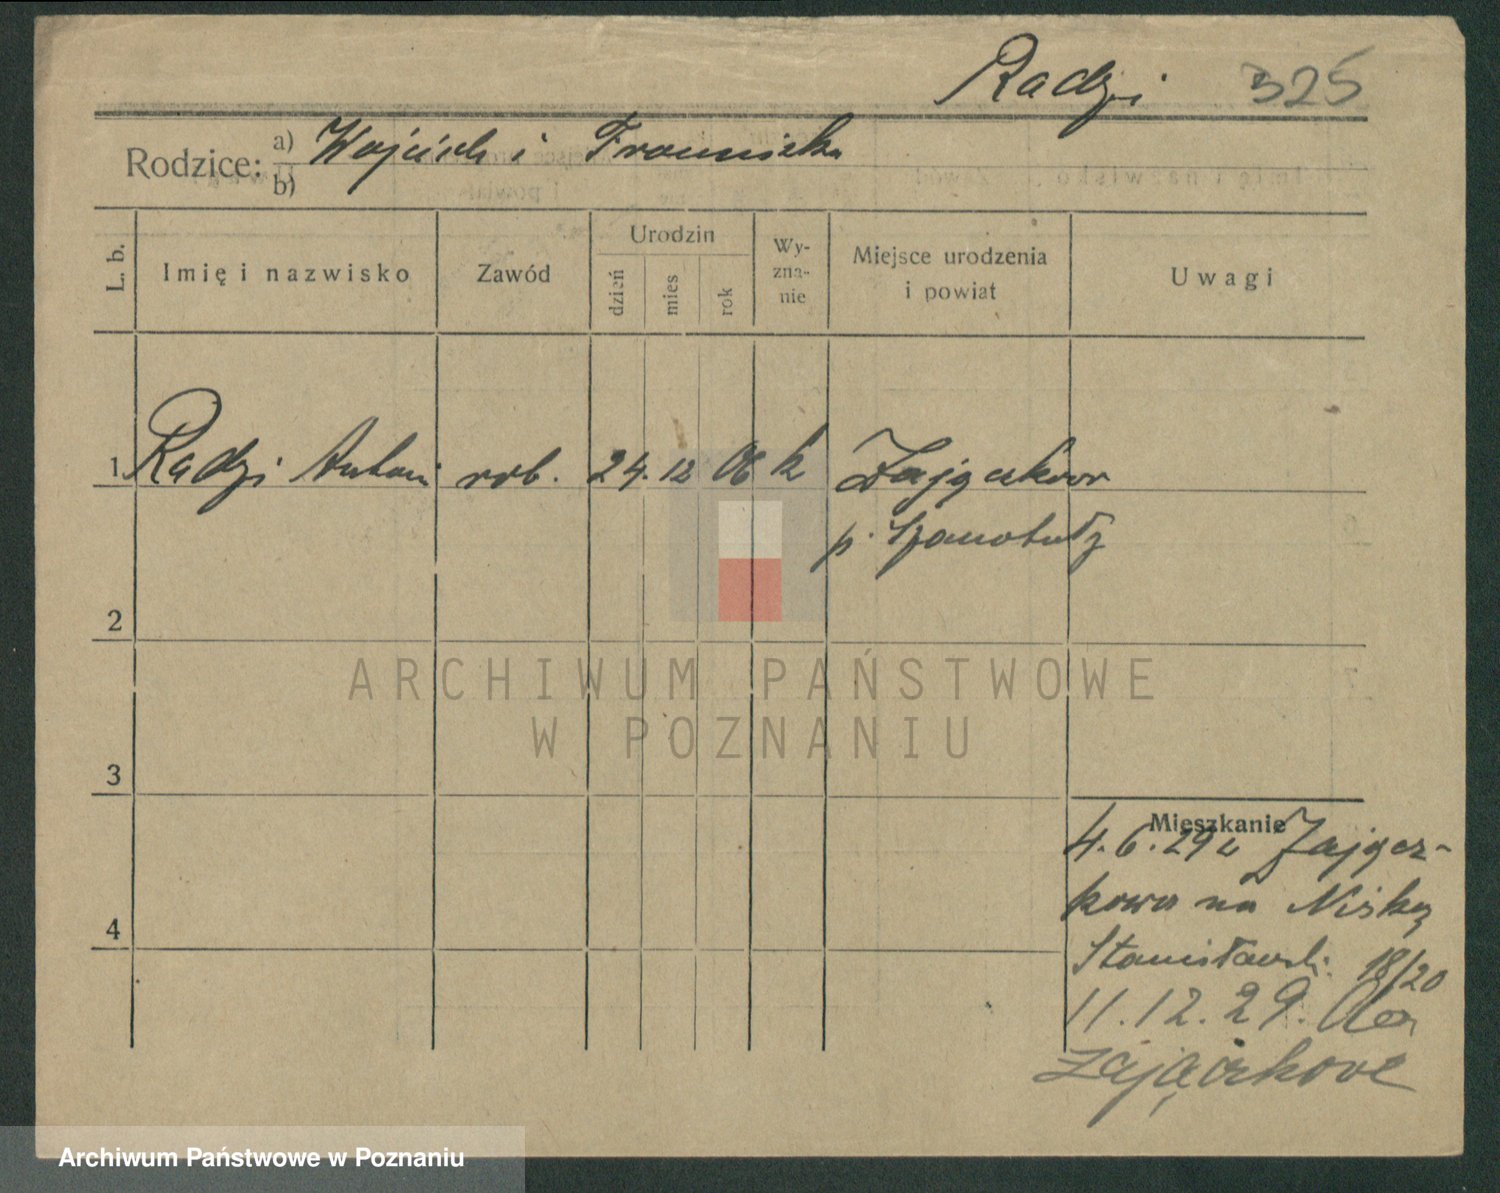 Radzi 325
Rodzice: a) Wojciech i Franciszka
b)
L. b.
Imię i nazwisko
Zawód
Urodzin
dzień
mies
rok
Wy-
zna-
nie
Miejsce urodzenia
i powiat
Uwagi
1 Radzi Antoni rob. 24. 12 06 k Zajączkowo
p. Szamotuły
2
3
4
Mieszkanie
4.6.29 z Zającz-
kowa na Niską
Stanisławski 18/20
11.12.29. do
Zajączkowa
ARCHIWUM PAŃSTWOWE
W POZNANIU
Archiwum Państwowe w Poznaniu